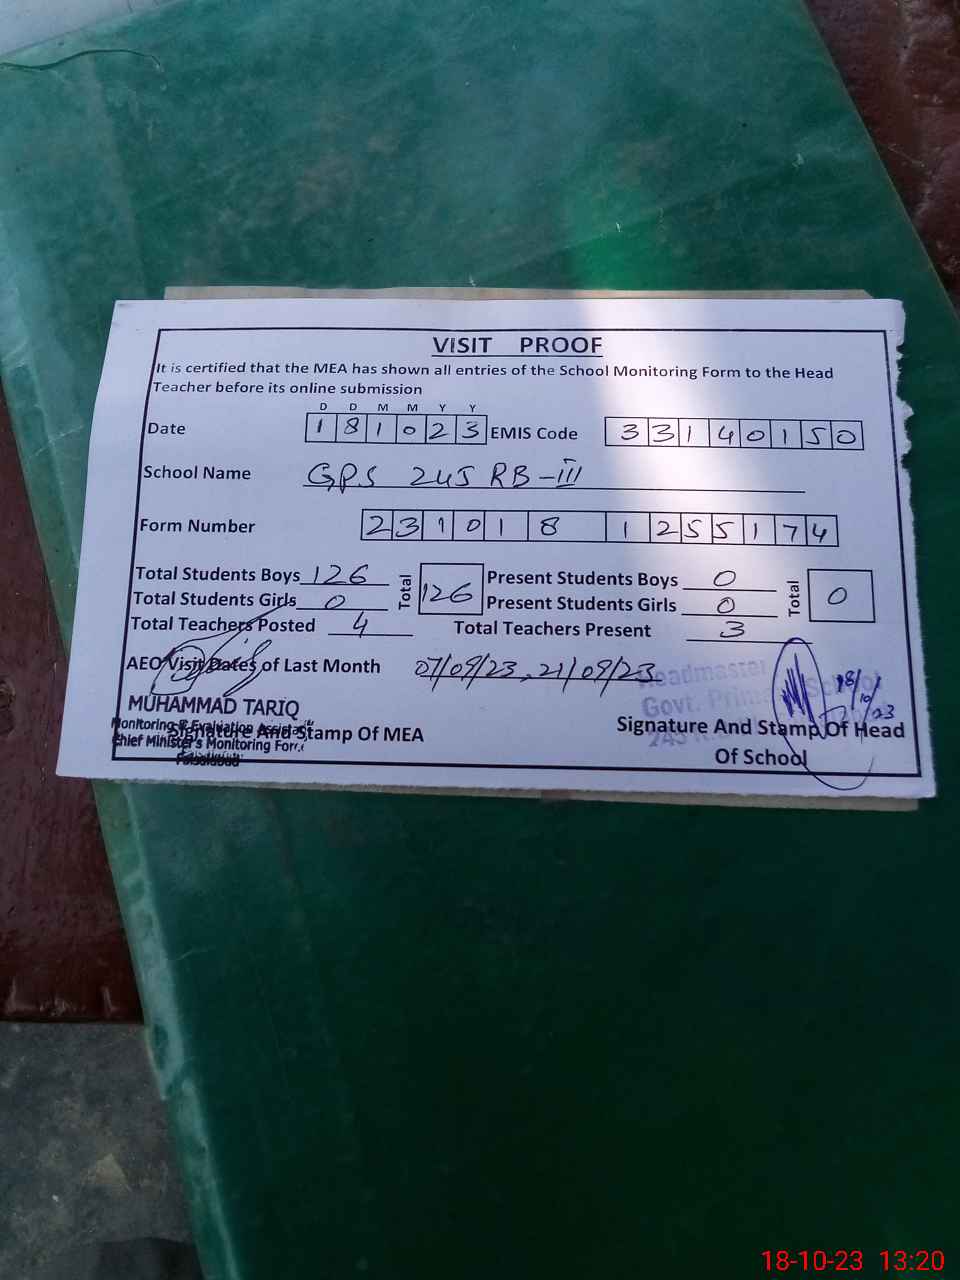 VISIT PROOF
It is certified that the MEA has shown all entries of the School Monitoring Form to the Head
Teacher before its online submission
D D M M Y Y
Date 1 8 1 0 2 3 EMIS Code 3 3 1 4 0 1 5 0
School Name GPS 245 RB-III
Form Number 2 3 1 0 1 8 1 2 5 5 1 7 4
Total Students Boys 126 Total 126 Present Students Boys 0 Total 0
Total Students Girls 0 Present Students Girls 0
Total Teachers Posted 4 Total Teachers Present 3
AEO Visit Dates of Last Month 07/09/23, 21/09/23
Headmaster
Govt. Primary School
245
18/10/23
MUHAMMAD TARIQ
Monitoring & Evaluation Assistant
Chief Minister's Monitoring Force
Faisalabad
Signature And Stamp Of MEA
Signature And Stamp Of Head
Of School
18-10-23 13:20